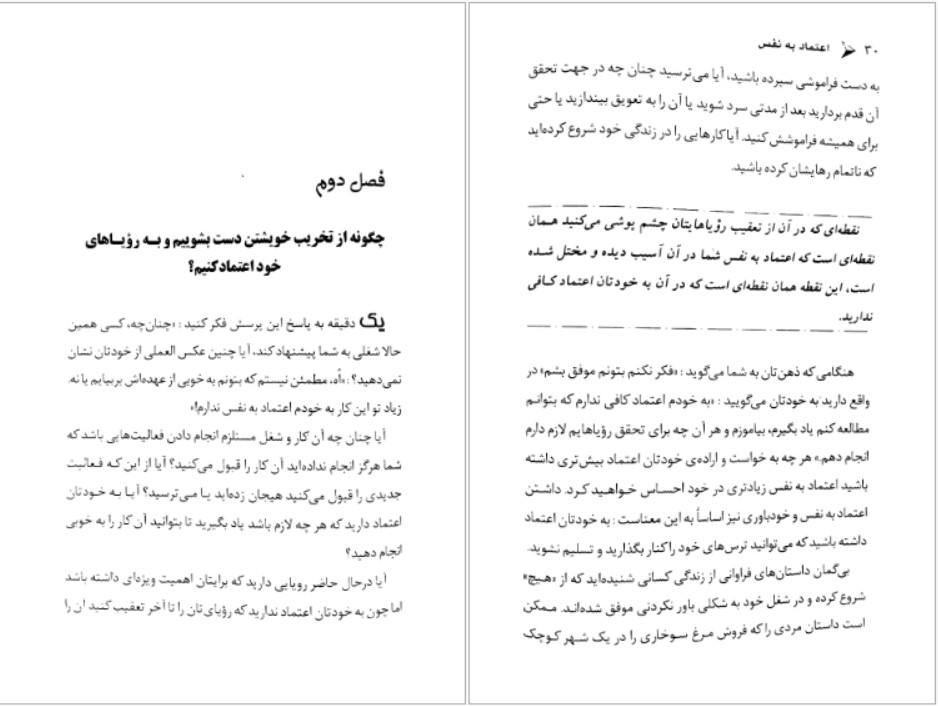 فصل دوم
چگونه از تخریب خویشتن دست بشوییم و بـه رؤیـاهای
خود اعتماد کنیم؟
یک دقیقه به پاسخ این پرسش فکر کنید : «چنان‌چه، کسی همین
حالا شغلی به شما پیشنهاد کند، آیا چنین عکس العملی از خودتان نشان
نمی‌دهید؟ : «اُه، مطمئن نیستم که بتونم به خوبی از عهده‌اش بربیایم یا نه.
زیاد تو این کار به خودم اعتماد به نفس ندارم!»
آیا چنان چه آن کار و شغل مستلزم انجام دادن فعالیت‌هایی باشد که
شما هرگز انجام نداده‌اید آن کار را قبول می‌کنید؟ آیا از این کـه فـعالیت
جدیدی را قبول می‌کنید هیجان زده‌اید یـا مـی‌ترسید؟ آیـا بـه خـودتان
اعتماد دارید که هر چه لازم باشد یاد بگیرید تا بتوانید آن کار را به خوبی
انجام دهید؟
آیا درحال حاضر رویایی دارید که برایتان اهمیت ویژه‌ای داشته باشد
اما چون به خودتان اعتماد ندارید که رؤیای‌تان را تا آخر تعقیب کنید آن را
۳۰ اعتماد به نفس
به دست فراموشی سپرده باشید، آیا می‌ترسید چنان چه در جهت تحقق
آن قدم بردارید بعد از مدتی سرد شوید یا آن را به تعویق بیندازید یا حتی
برای همیشه فراموشش کنید. آیا کارهایی را در زندگی خود شروع کرده‌اید
که ناتمام رهایشان کرده باشید.
نقطه‌ای که در آن از تعقیب رؤیاهایتان چشم پوشی می‌کنید همان
نقطه‌ای است که اعتماد به نفس شما در آن آسیب دیده و مختل شده
است، این نقطه همان نقطه‌ای است که در آن به خودتان اعتماد کـافی
ندارید.
هنگامی که ذهن‌تان به شما می‌گوید : «فکر نکنم بتونم موفق بشم» در
واقع دارید به خودتان می‌گویید : «به خودم اعتماد کافی ندارم که بتوانـم
مطالعه کنم یاد بگیرم، بیاموزم و هر آن چه برای تحقق رؤیاهایم لازم دارم
انجام دهم.» هر چه به خواست و اراده‌ی خودتان اعتماد بیش‌تری داشته
باشید اعتماد به نفس زیادتری در خود احساس خـواهـید کـرد. داشـتن
اعتماد به نفس و خودباوری نیز اساساً به این معناست : به خودتان اعتماد
داشته باشید که می‌توانید ترس‌های خود را کنار بگذارید و تسلیم نشوید.
بی‌گمان داستان‌های فراوانی از زندگی کسانی شنیده‌اید که از «هـیچ»
شروع کرده و در شغل خود به شکلی باور نکردنی موفق شده‌انـد. مـمکن
است داستان مردی را که فروش مرغ سـوخاری را در یک شـهر کـوچک